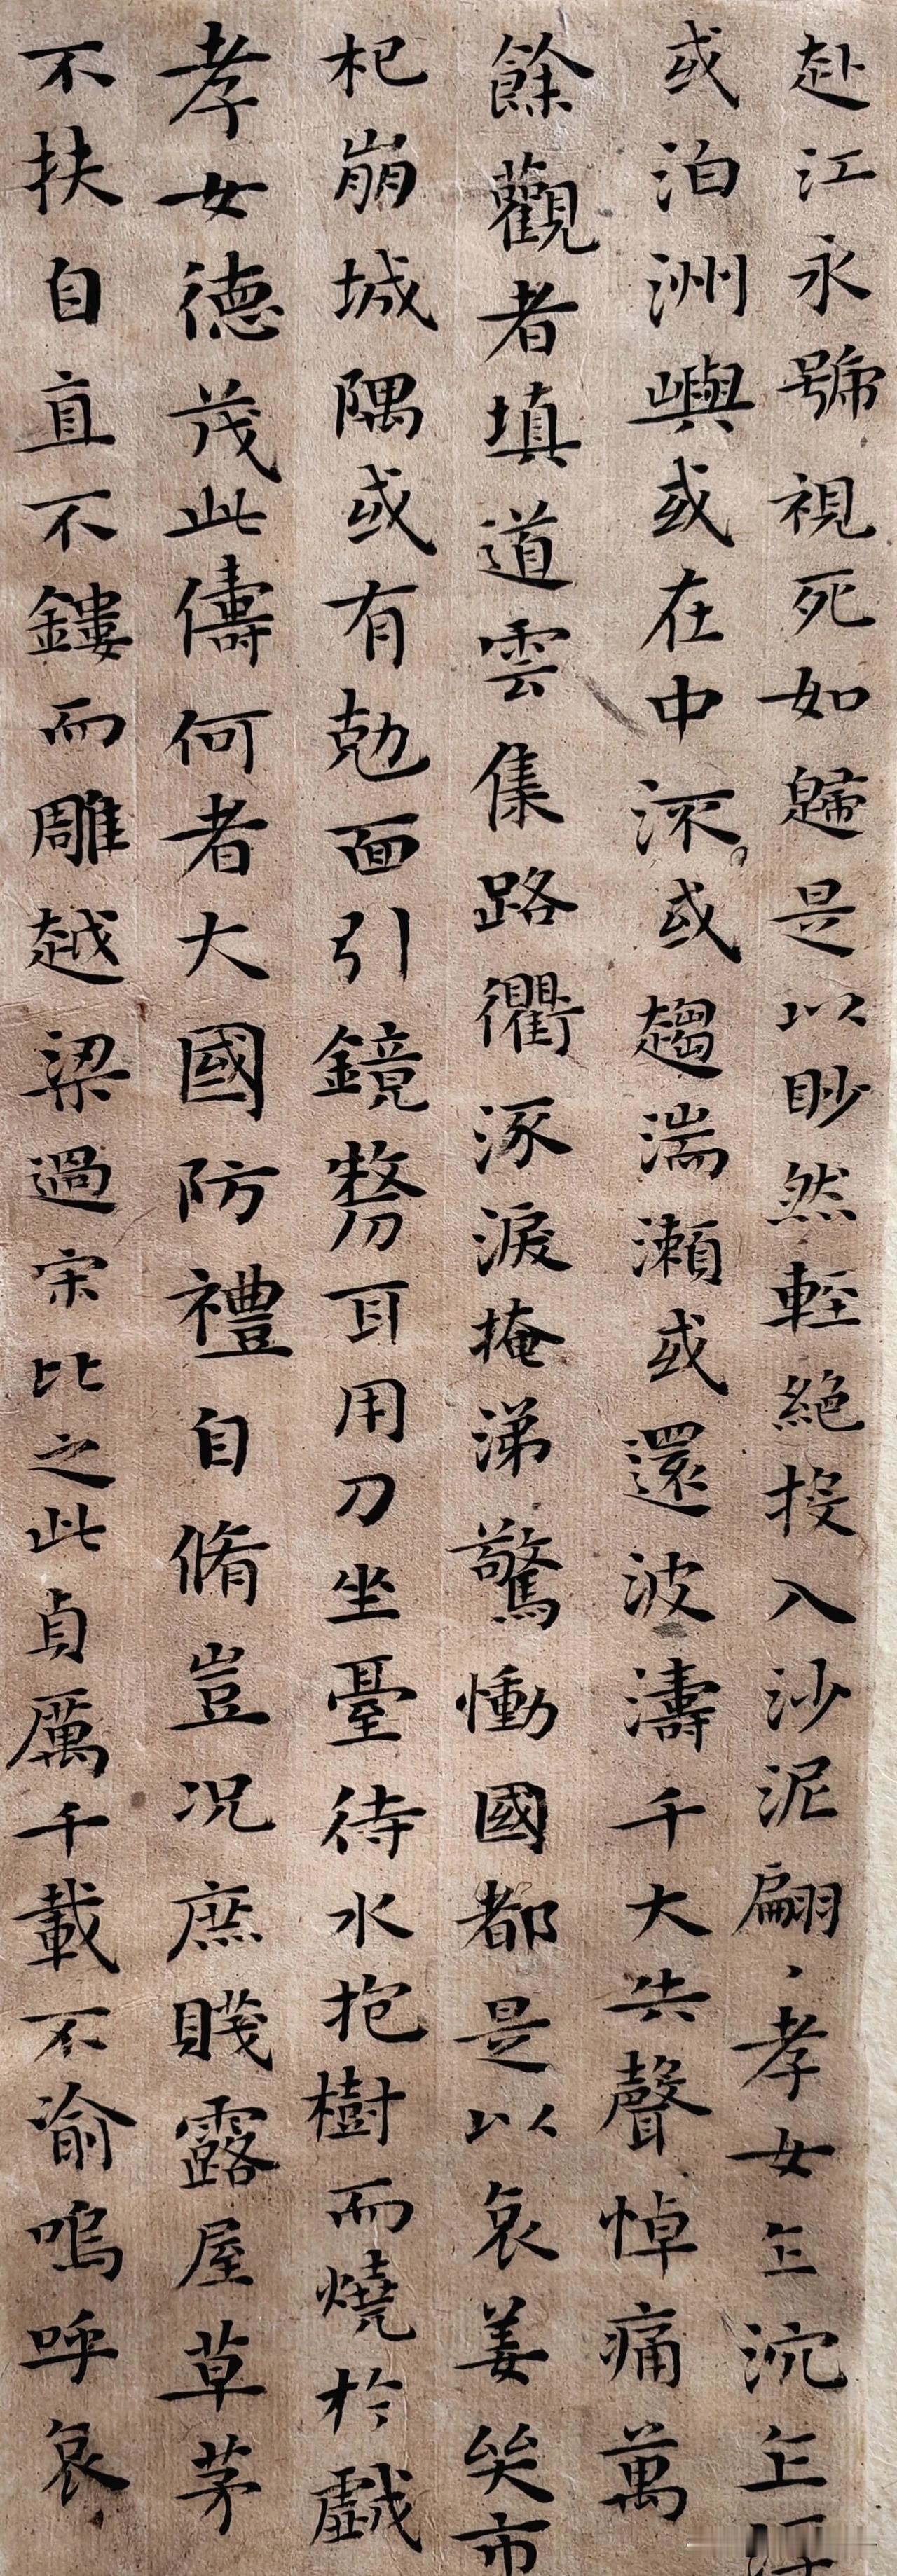 赴江永號視死如歸是以眇然輕絕投入沙泥翩、孝女乍沉乍
或泊洲嶼或在中流或趨湍瀨或還波濤千大失聲悼痛萬
餘觀者填道雲集路衢流淚掩涕驚慟國都是以哀姜哭市
杞崩城隅或有勊面引鏡剺耳用刀坐臺待水抱樹而燒於戲
孝女德茂此儔何者大國防禮自脩豈況庶賤露屋草茅
不扶自直不鏤而雕越梁過宋比之此貞厲千載不渝嗚呼哀